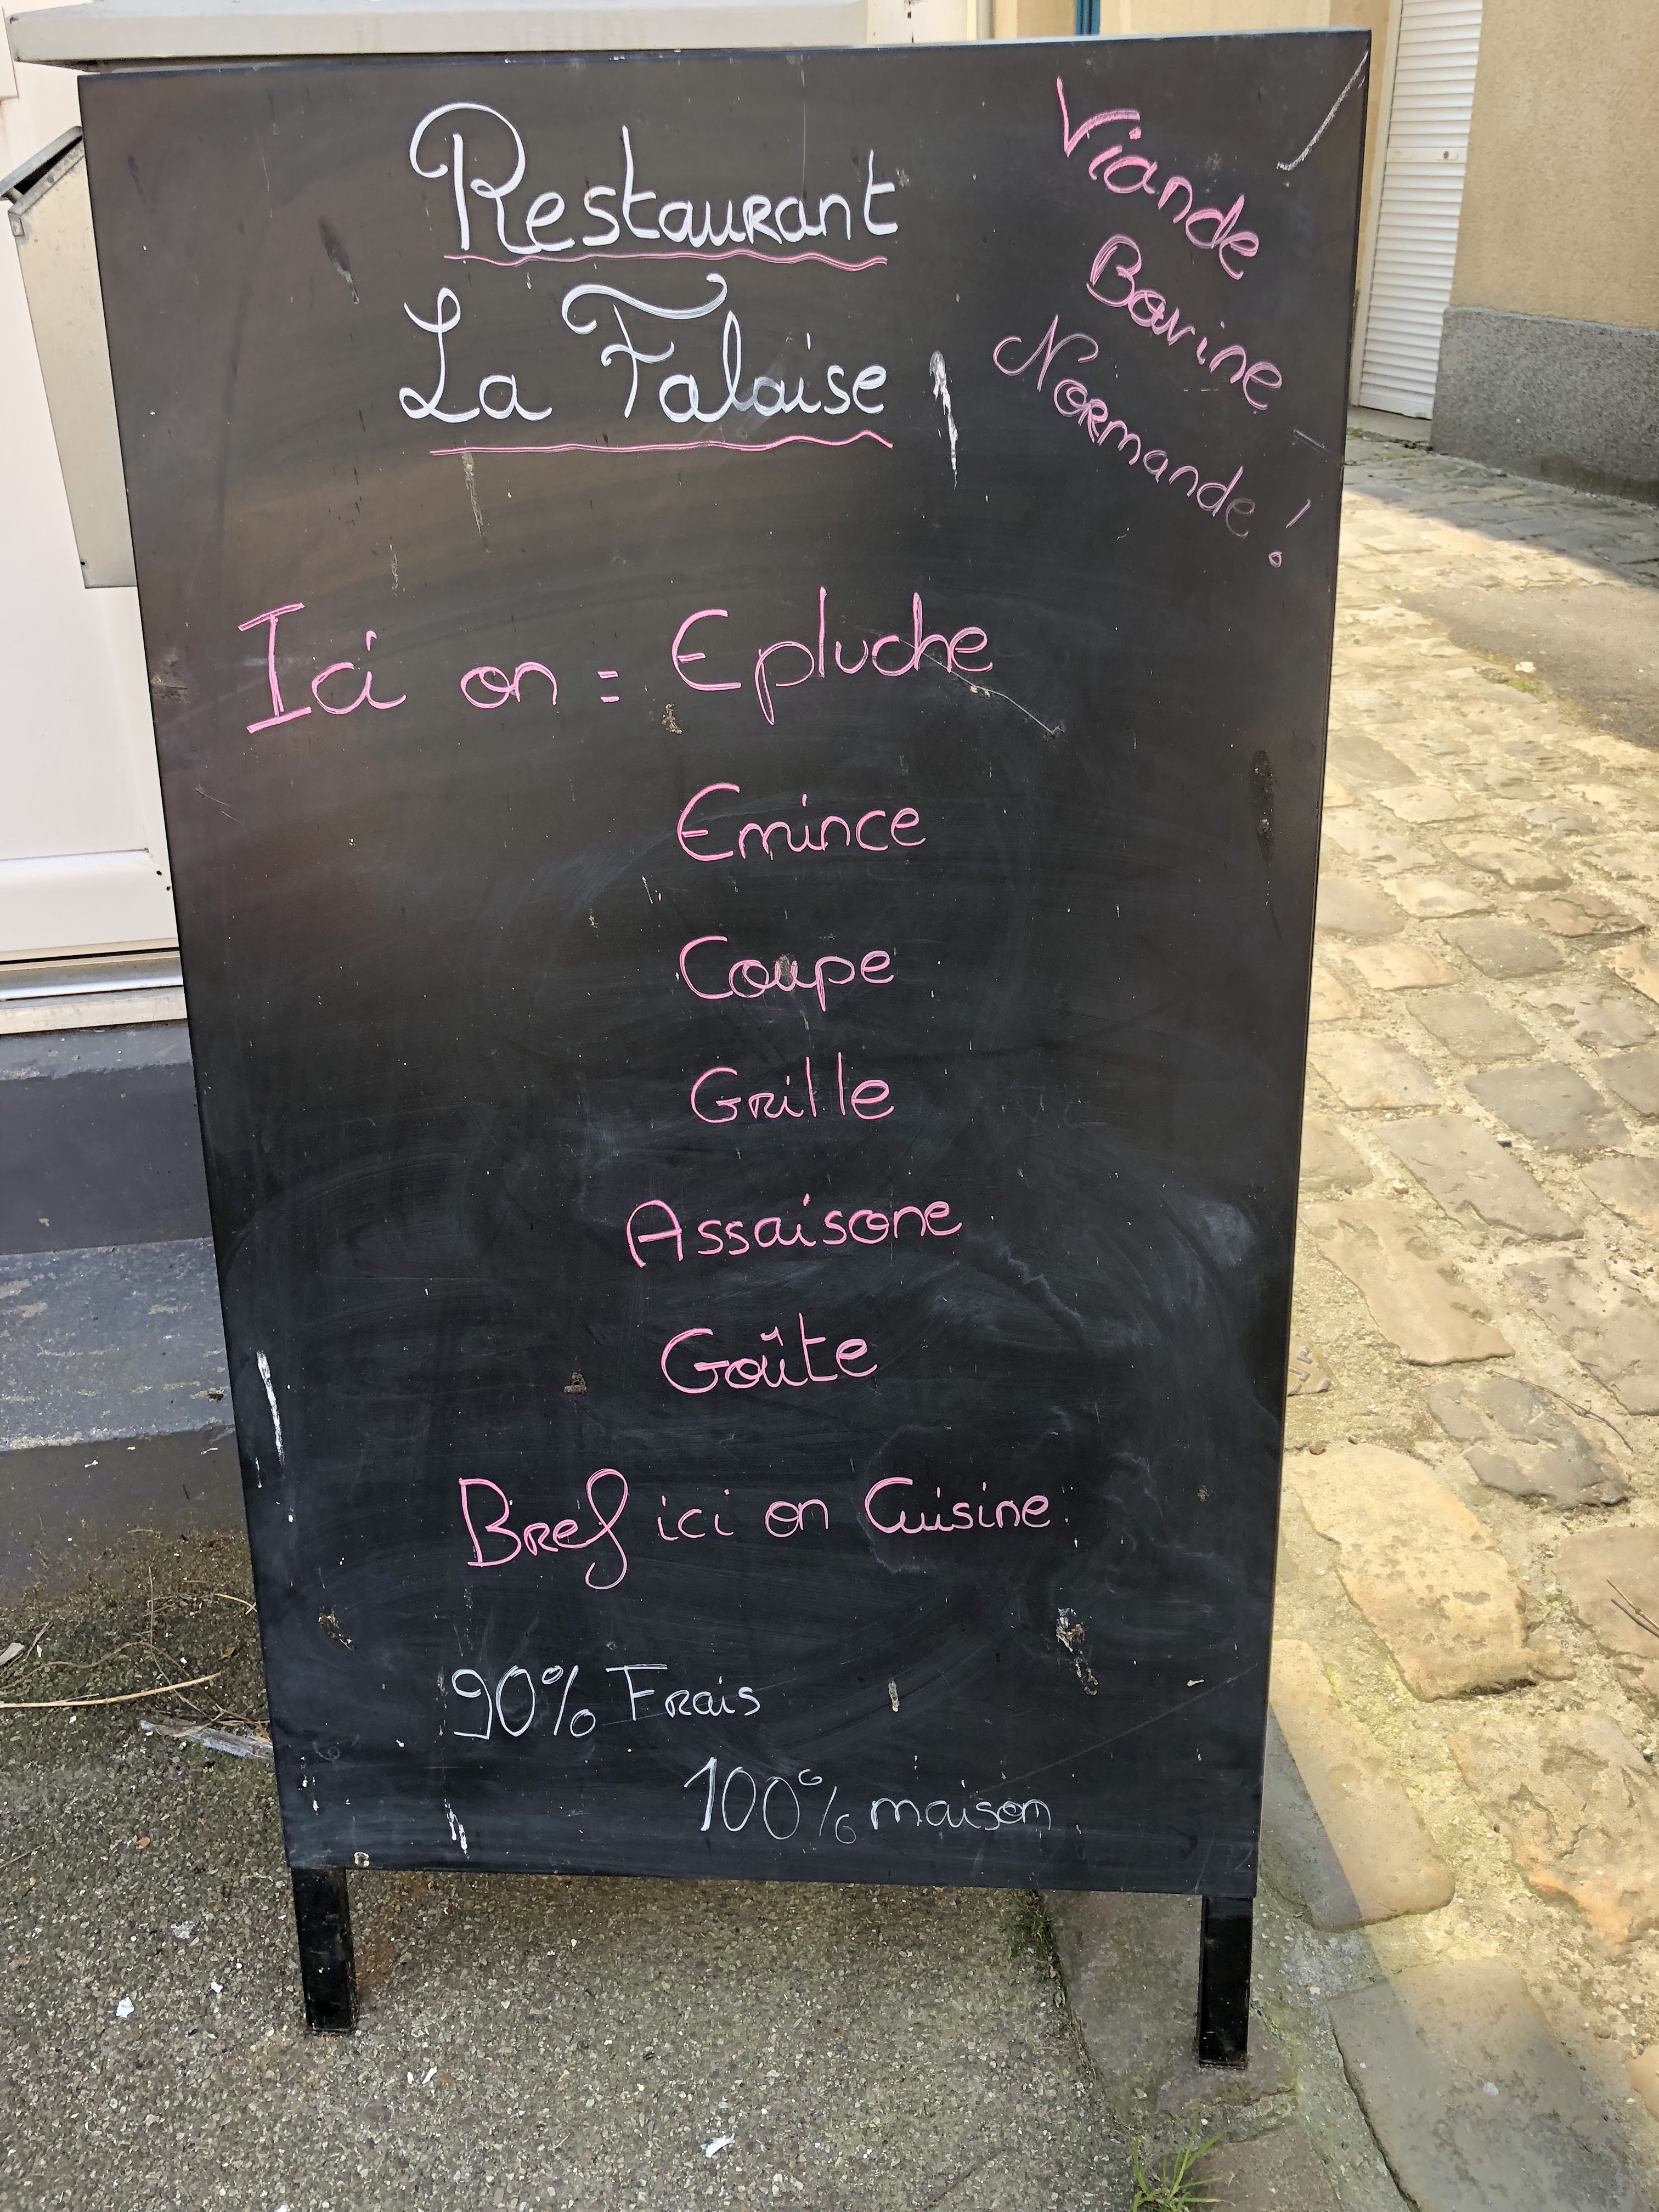 Restaurant
La Falaise
Viande
Bovine
Normande !
Ici on = Epluche
Emince
Coupe
Grille
Assaisone
Goûte
Bref ici on Cuisine
90% Frais
100% maison